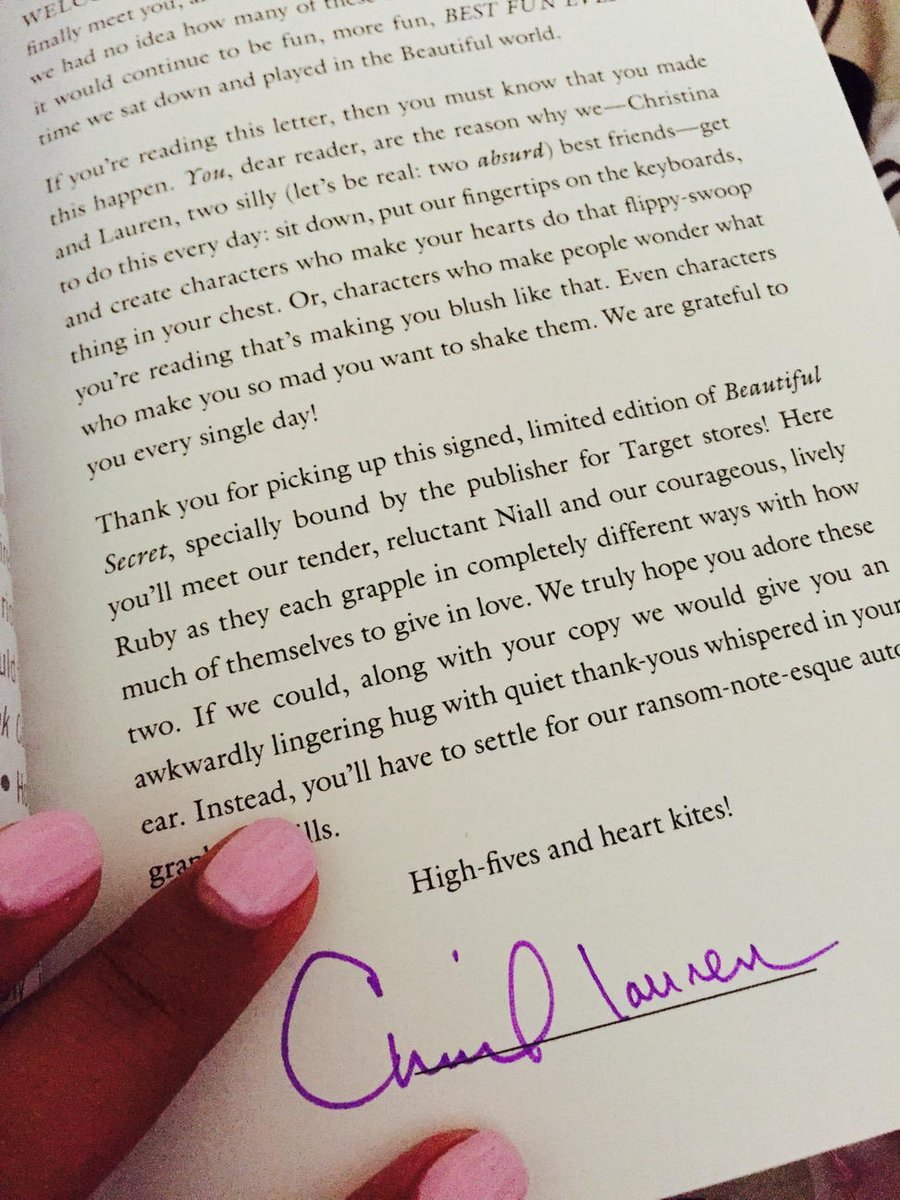 finally meet you,
we had no idea how many of these
it would continue to be fun, more fun, BEST FUN
time we sat down and played in the Beautiful world.
If you're reading this letter, then you must know that you made
this happen. You, dear reader, are the reason why we—Christina
and Lauren, two silly (let's be real: two absurd) best friends—get
to do this every day: sit down, put our fingertips on the keyboards,
and create characters who make your hearts do that flippy-swoop
thing in your chest. Or, characters who make people wonder what
you're reading that's making you blush like that. Even characters
who make you so mad you want to shake them. We are grateful to
you every single day!
Thank you for picking up this signed, limited edition of Beautiful
Secret, specially bound by the publisher for Target stores! Here
you'll meet our tender, reluctant Niall and our courageous, lively
Ruby as they each grapple in completely different ways with how
much of themselves to give in love. We truly hope you adore these
two. If we could, along with your copy we would give you an
awkwardly lingering hug with quiet thank-yous whispered in your
ear. Instead, you'll have to settle for our ransom-note-esque auto
High-fives and heart kites!
lauren